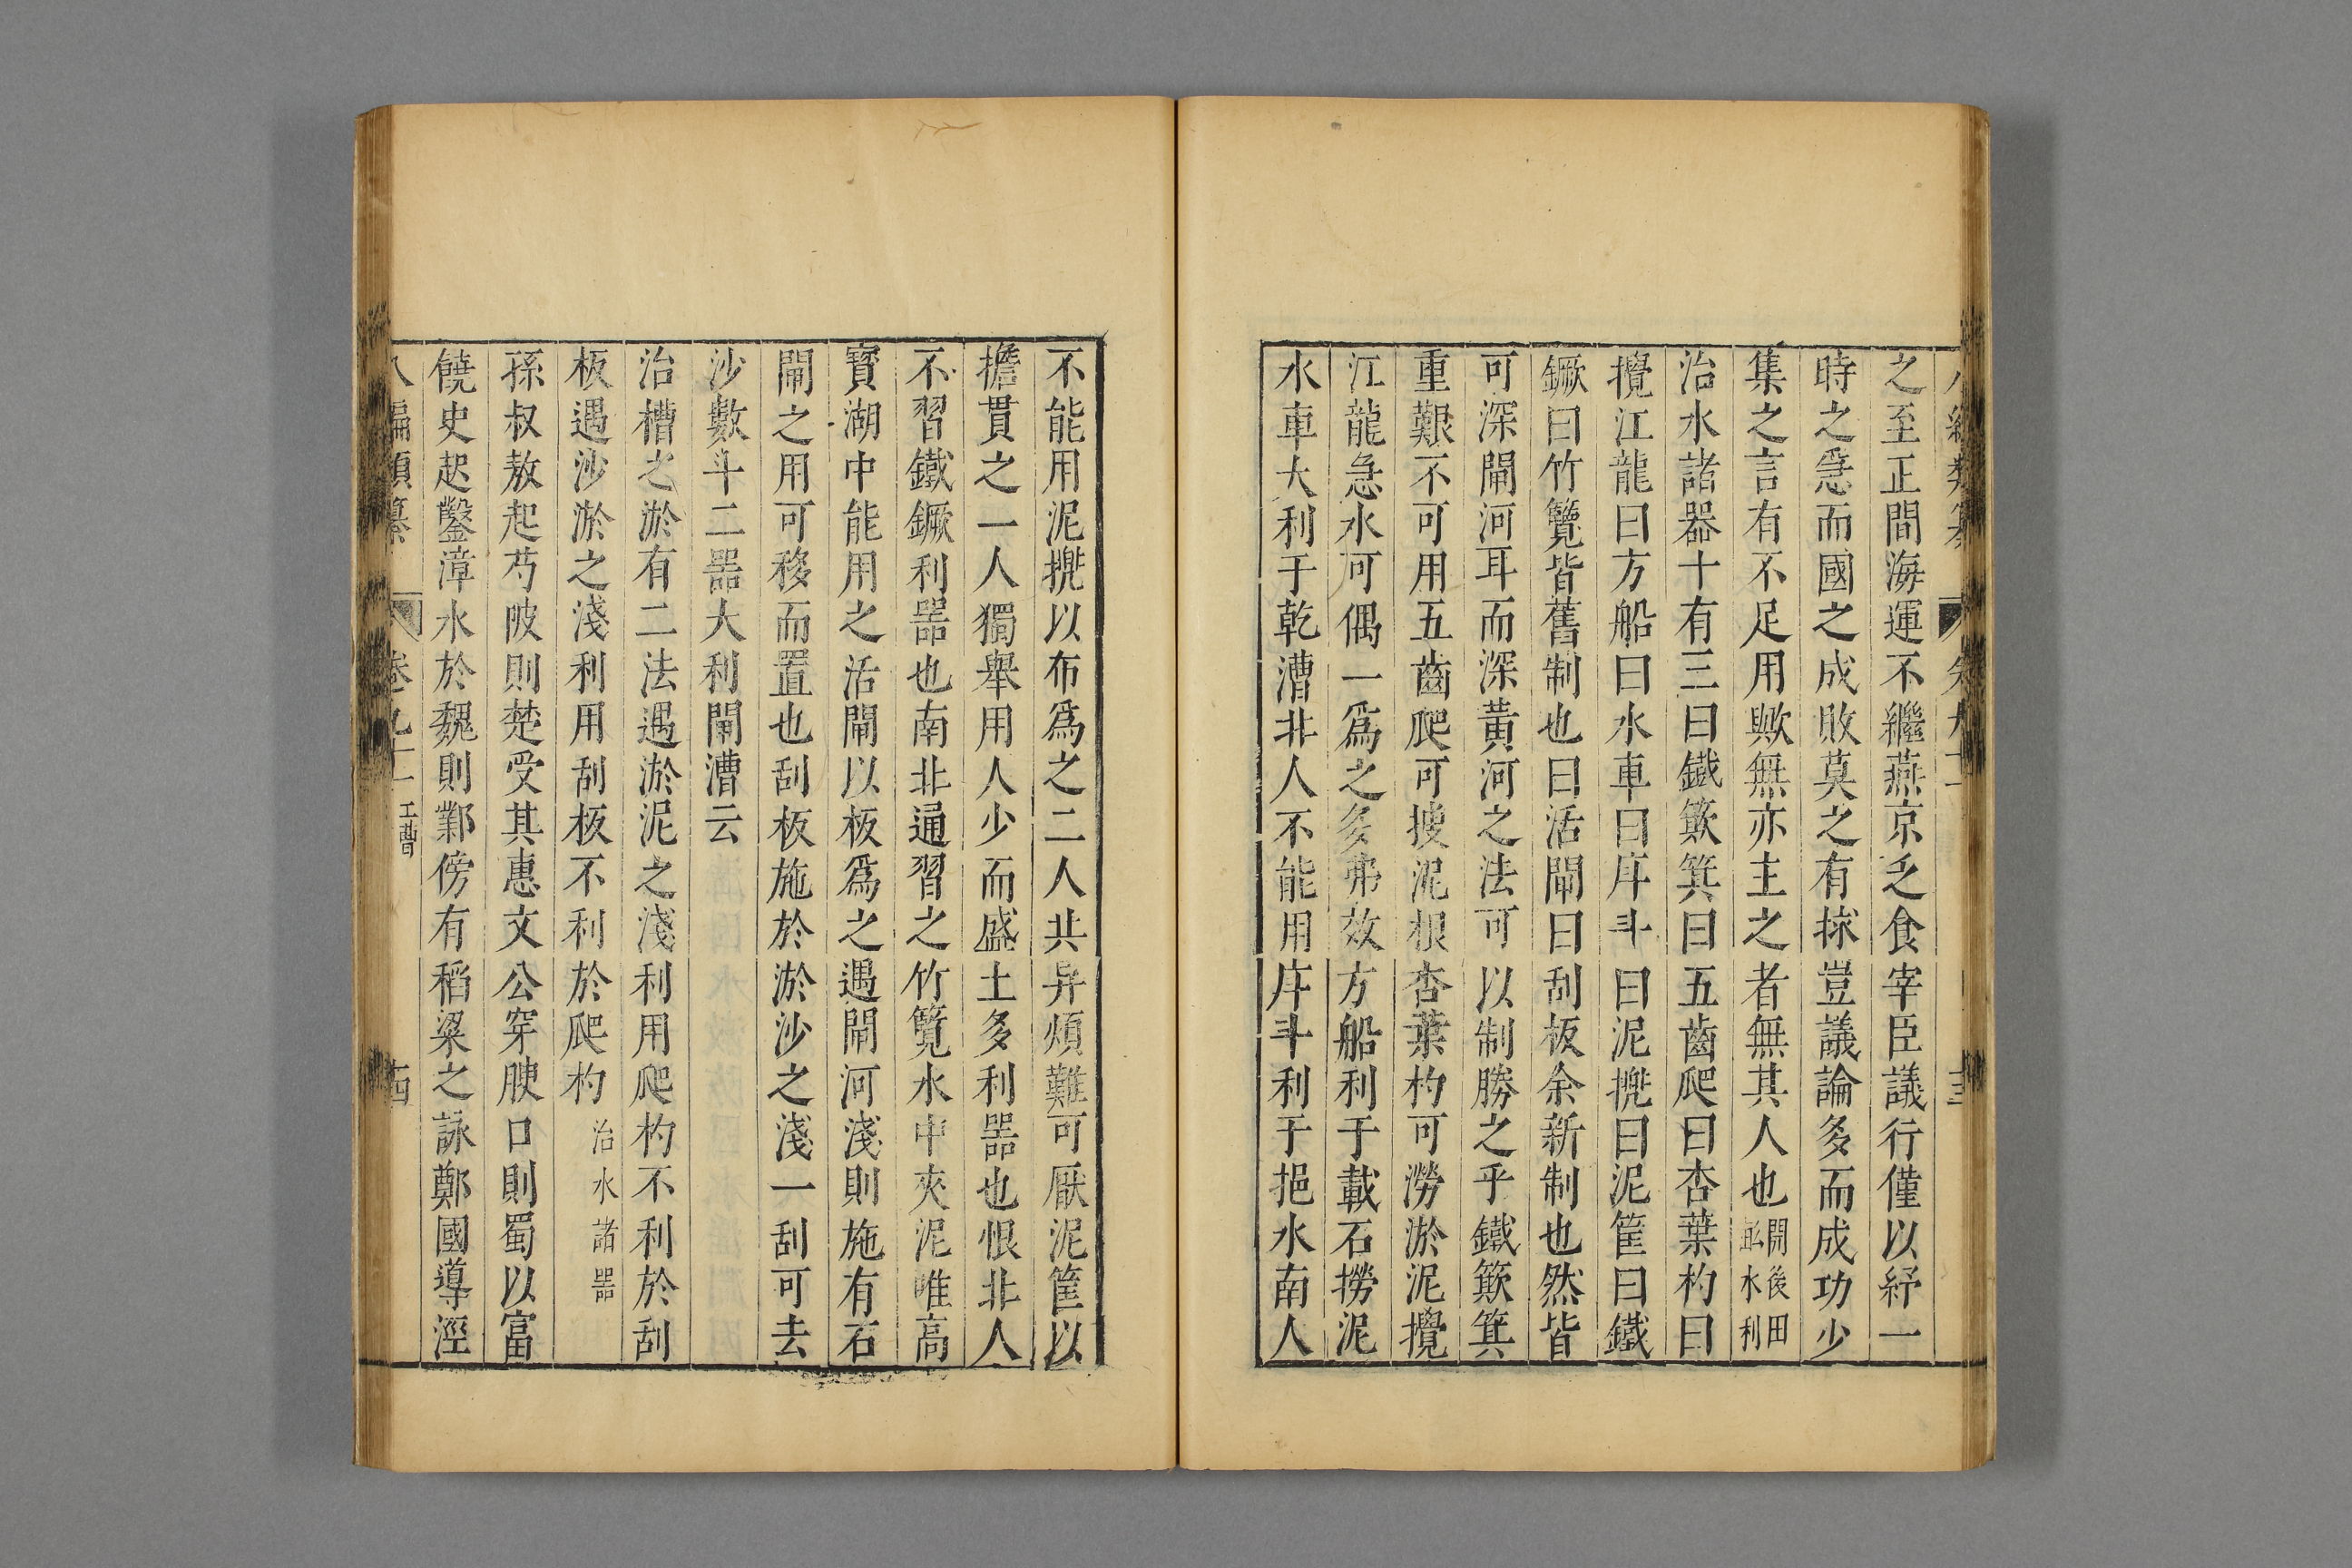 之至正間海運不繼燕京乏食宰臣議行僅以紓一
時之急而國之成敗莫之有捄豈議論多而成功少
集之言有不足用歟無亦主之者無其人也開後田並水利
治水諸器十有三曰鐵簸箕曰五齒爬曰杏葉杓曰
攪江龍曰方船曰水車曰戽斗曰泥㧪曰泥筐曰鐵
鐝曰竹籰皆舊制也曰活閘曰刮板余新制也然皆
可深閘河耳而深黃河之法可以制勝之乎鐵簸箕
重艱不可用五齒爬可搜泥根杏葉杓可澇淤泥攪
江龍急水可偶一爲之多弗效方船利于載石撈泥
水車大利于乾漕非人不能用戽斗利于挹水南人
不能用泥㧪以布爲之二人共舁煩難可厭泥筐以
擔貫之一人獨舉用人少而盛土多利噐也恨非人
不習鐵鐝利噐也南北通習之竹籰水中夾泥唯高
寶湖中能用之活閘以板爲之遇閘河淺則施有石
閘之用可移而置也刮板施於淤沙之淺一刮可去
沙數斗二噐大利閘漕云
治槽之淤有二法遇淤泥之淺利用爬杓不利於刮
板遇沙淤之淺利用刮板不利於爬杓治水諸噐
孫叔敖起芍陂則楚受其惠文公穿腴口則蜀以富
饒史起鑿漳水於魏則鄴傍有稻粱之詠鄭國導涇
八編類纂 卷九十一 工曹 十四